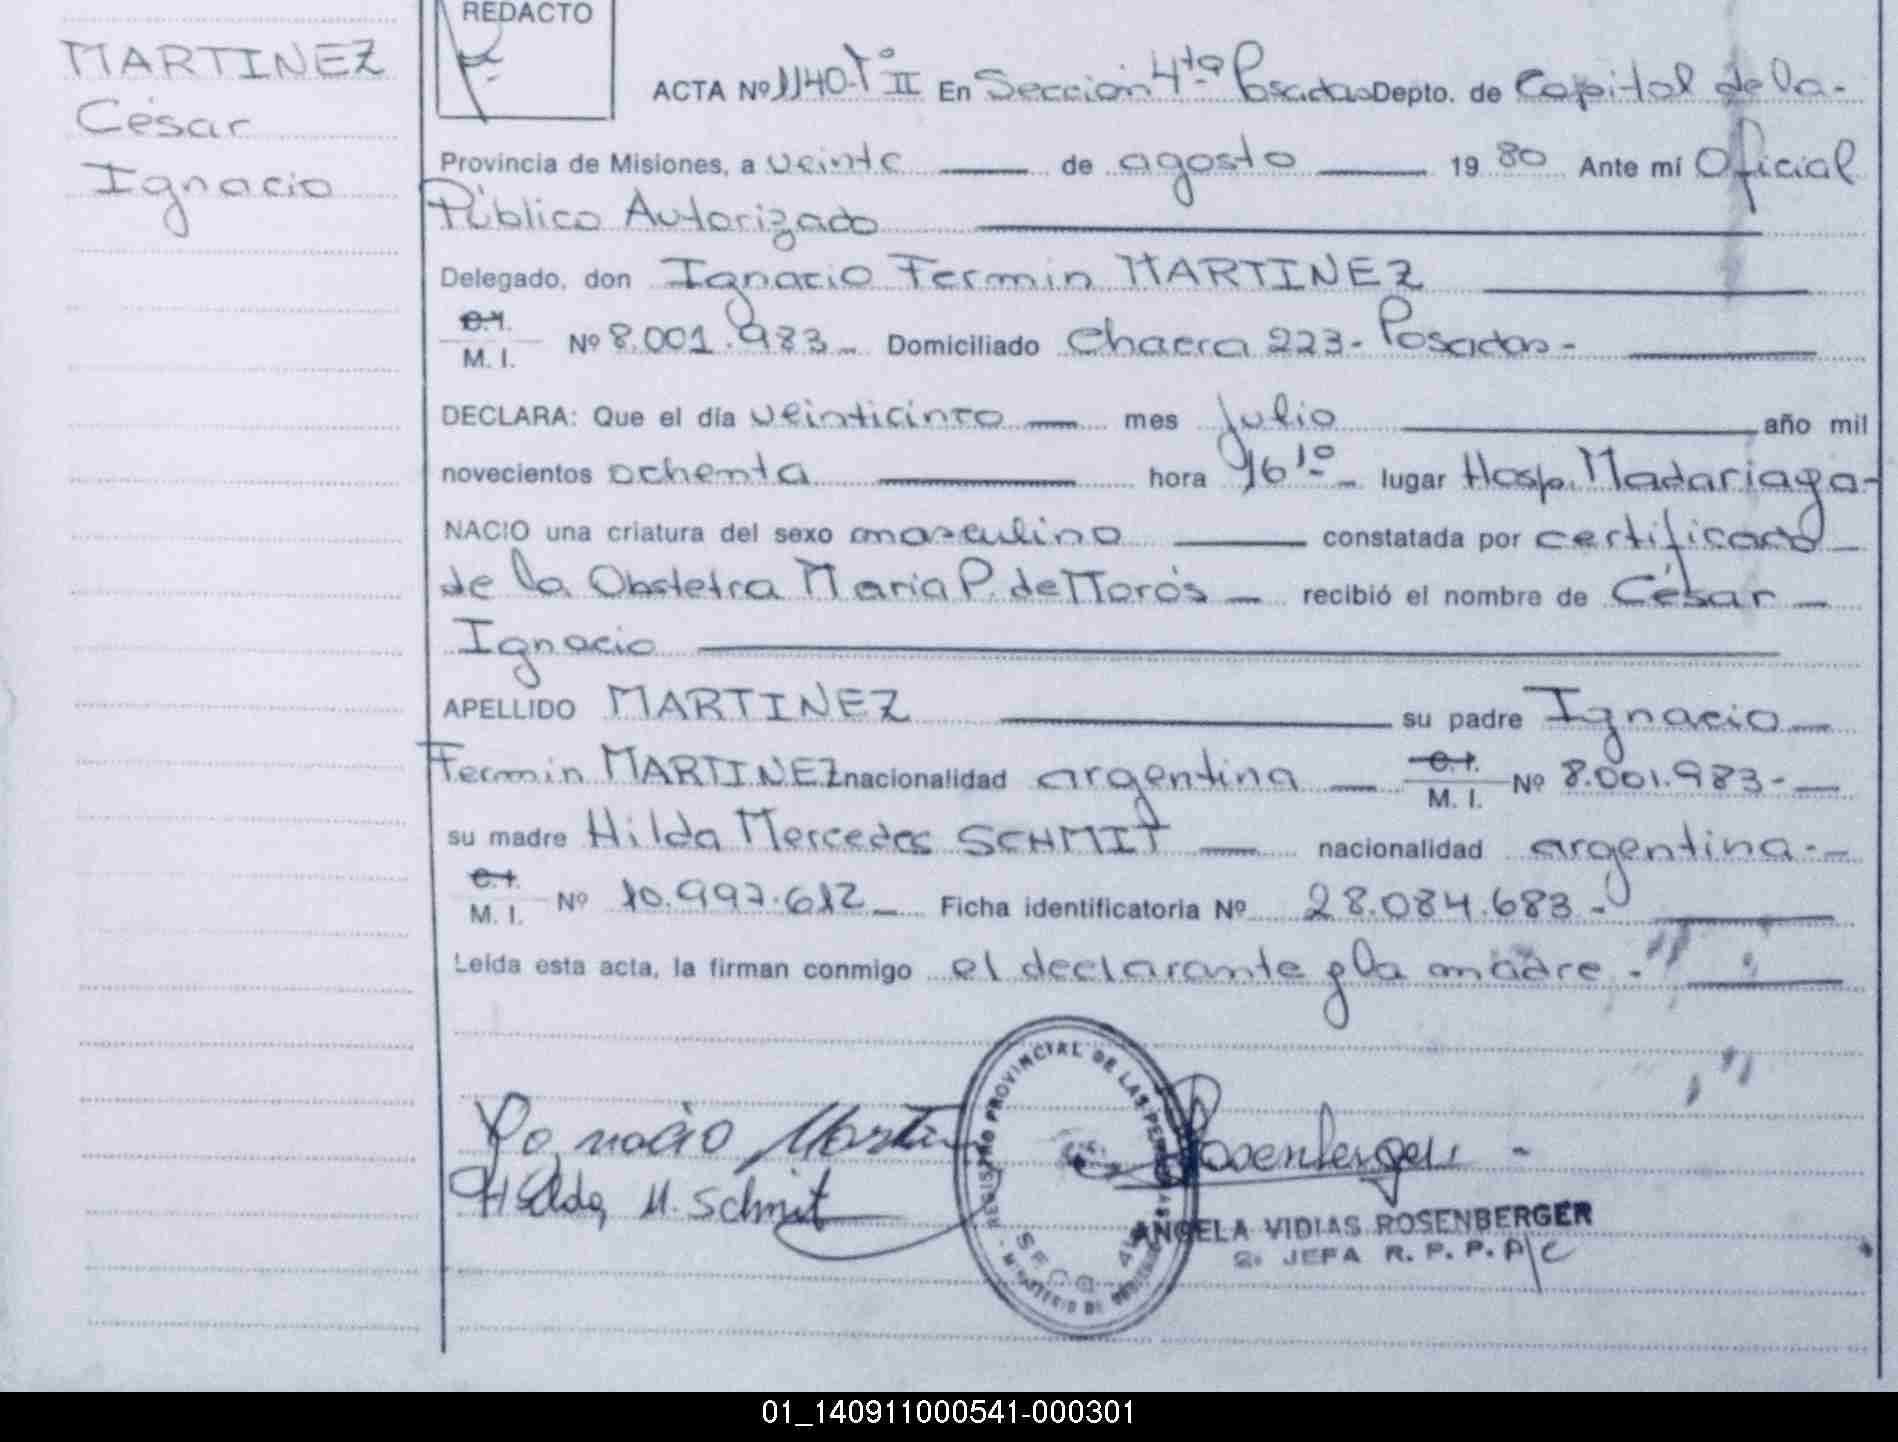 REDACTO
MARTINEZ
César
Ignacio
ACTA Nº 1140-Tº II En Sección 4ta Posadas Depto. de Capital de la-
Provincia de Misiones, a veinte de agosto 1980 Ante mí Oficial
Público Autorizado
Delegado, don Ignacio Fermin MARTINEZ
M. I. Nº 8.001.983- Domiciliado Chacra 223- Posadas-
DECLARA: Que el día veinticinco mes julio año mil
novecientos ochenta hora 16 10 - lugar Hosp. Madariaga-
NACIO una criatura del sexo masculino constatada por certificado
de la Obstetra María P. de Morós - recibió el nombre de César -
Ignacio
APELLIDO MARTINEZ su padre Ignacio
Fermin MARTINEZ nacionalidad argentina M. I. Nº 8.001.983-
su madre Hilda Mercedes SCHMIT nacionalidad argentina.-
M. I. Nº 10.997.612- Ficha identificatoria Nº 28.084.683-
Leída esta acta, la firman conmigo el declarante y la madre.-
Ignacio Martin
Hilda M. Schmit
Rosenberger
REGISTRO PROVINCIAL DE LAS PERSONAS
ANGELA VIDIAS ROSENBERGER
JEFA R. P. P. A/C
01_140911000541-000301